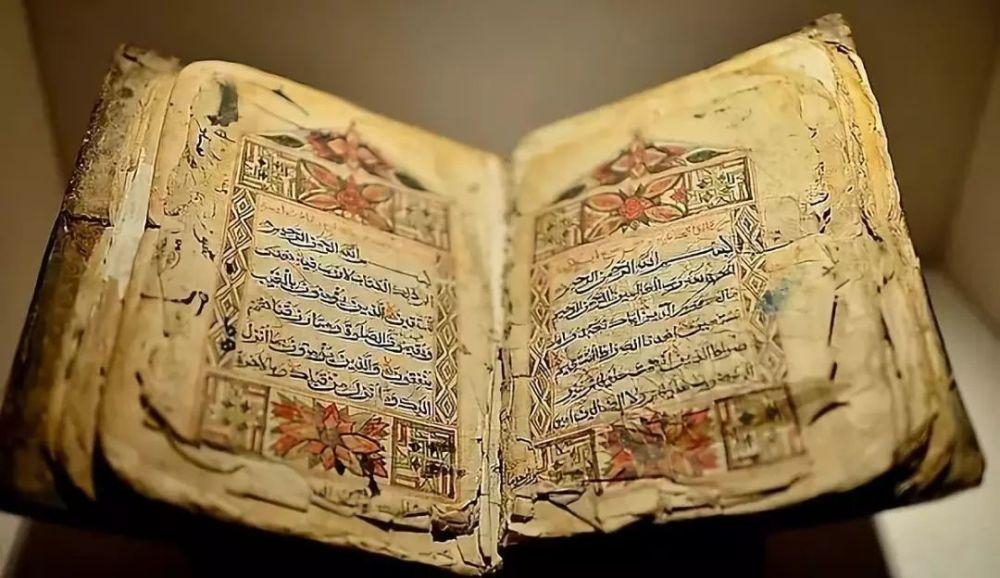 بسم الله الرحمن الرحيم
الحمد لله رب العالمين الرحمن الرحيم
مالك يوم الدين اياك نعبد واياك
نستعين اهدنا الصراط المستقيم
صراط الذين انعمت عليهم غير
المغضوب عليهم ولا الضالين امين
بسم الله الرحمن الرحيم
الم ذلك الكتاب لا ريب فيه هدى
للمتقين الذين يؤمنون بالغيب
ويقيمون الصلوة ومما رزقناهم
ينفقون والذين يؤمنون بما انزل
اليك وما انزل من قبلك وبالاخرة